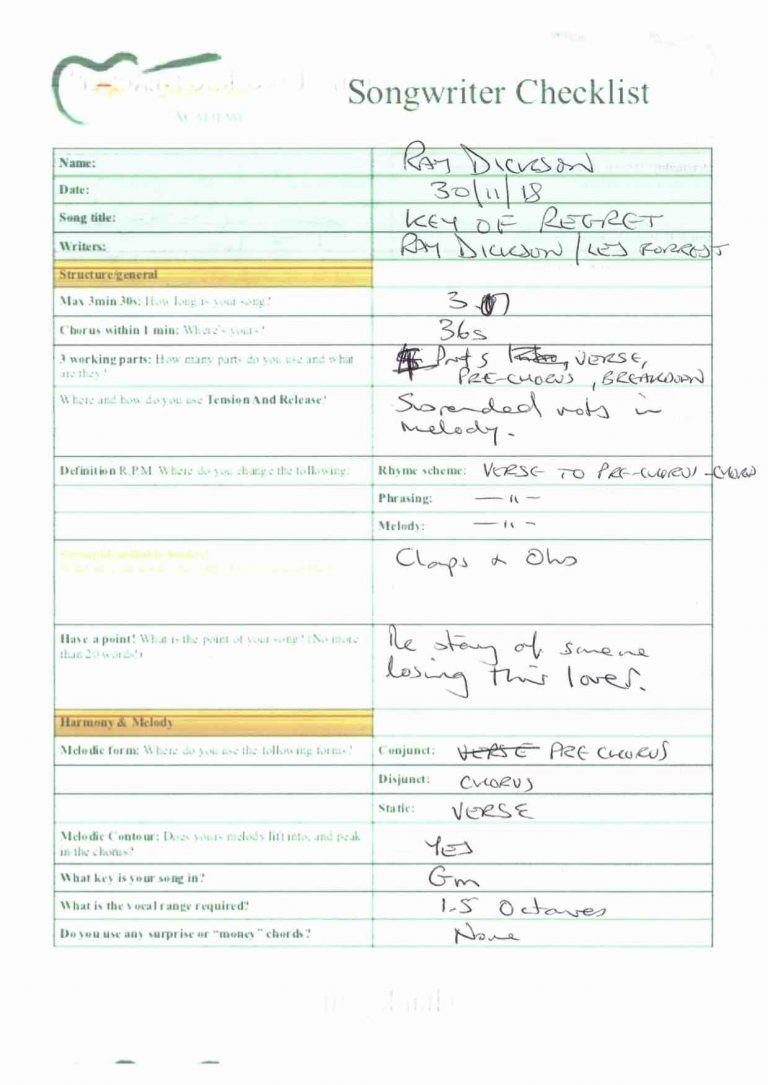 ACADEMY
Songwriter Checklist
Name: RAY DICKSON
Date: 30/11/18
Song title: KEY OF REGRET
Writers: RAY DICKSON / LES FORREST
Structure/general
Max 3min 30s: How long is your song? 3
Chorus within 1 min: Where's yours? 36s
3 working parts: How many parts do you use and what Parts , VERSE,
are they? PRE-CHORUS , BREAKDOWN
Where and how do you use Tension And Release? Suspended nots in
melody.
Definition R.P.M. Where do you change the following: Rhyme scheme: VERSE TO PRE-CHORUS - CHORUS
Phrasing: — 11 —
Melody: — 11 —
Claps + Ohs
Have a point! What is the point of your song? (No more The story of someone
than 20 words!) losing their lover.
Harmony & Melody
Melodic form: Where do you use the following forms? Conjunct: VERSE PRE CHORUS
Disjunct: CHORUS
Static: VERSE
Melodic Contour: Does yours melody lift into, and peak
in the chorus? YES
What key is your song in? Gm
What is the vocal range required? 1.5 Octaves
Do you use any surprise or "money" chords? None